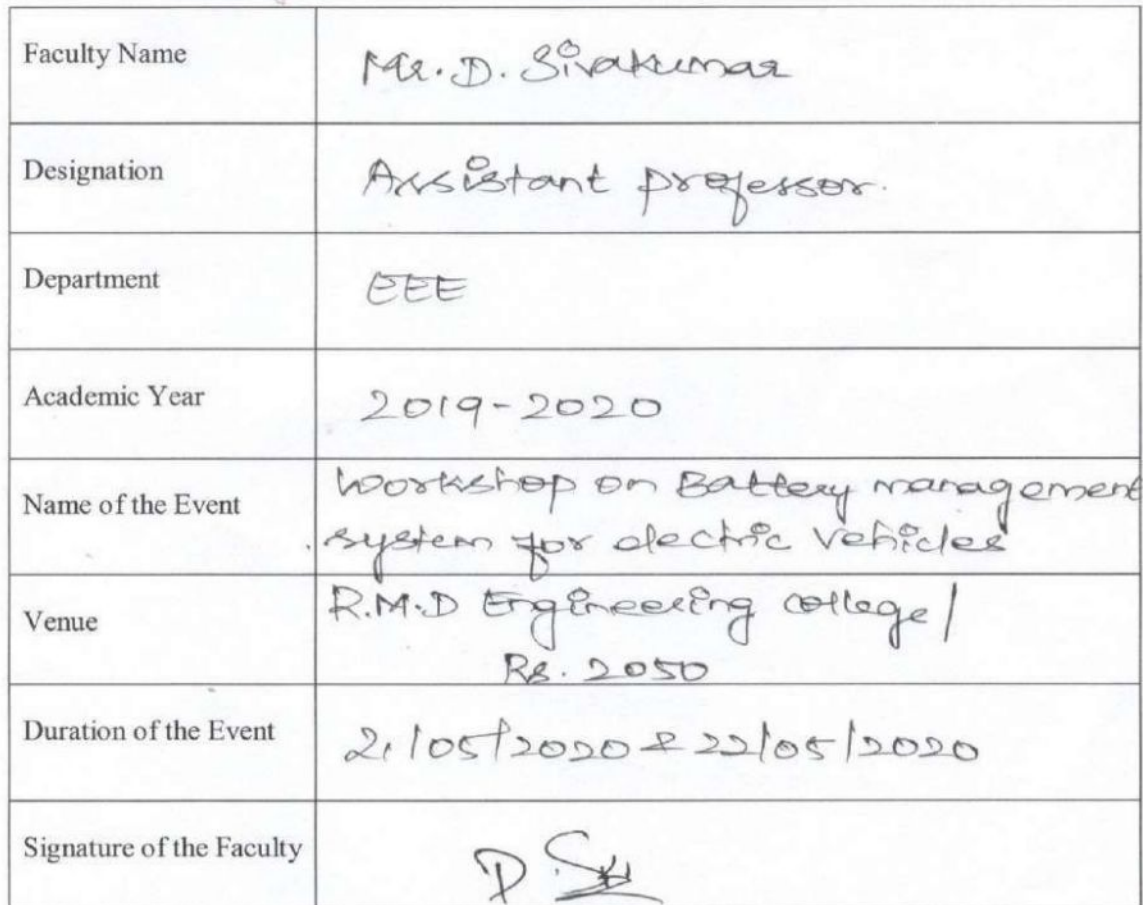 Faculty Name Mr. D. Sivakumar
Designation Assistant professor.
Department EEE
Academic Year 2019-2020
Name of the Event Workshop on Battery management
system for electric Vehicles
Venue R.M.D Engineering college /
Rs. 2050
Duration of the Event 21/05/2020 & 22/05/2020
Signature of the Faculty D. S